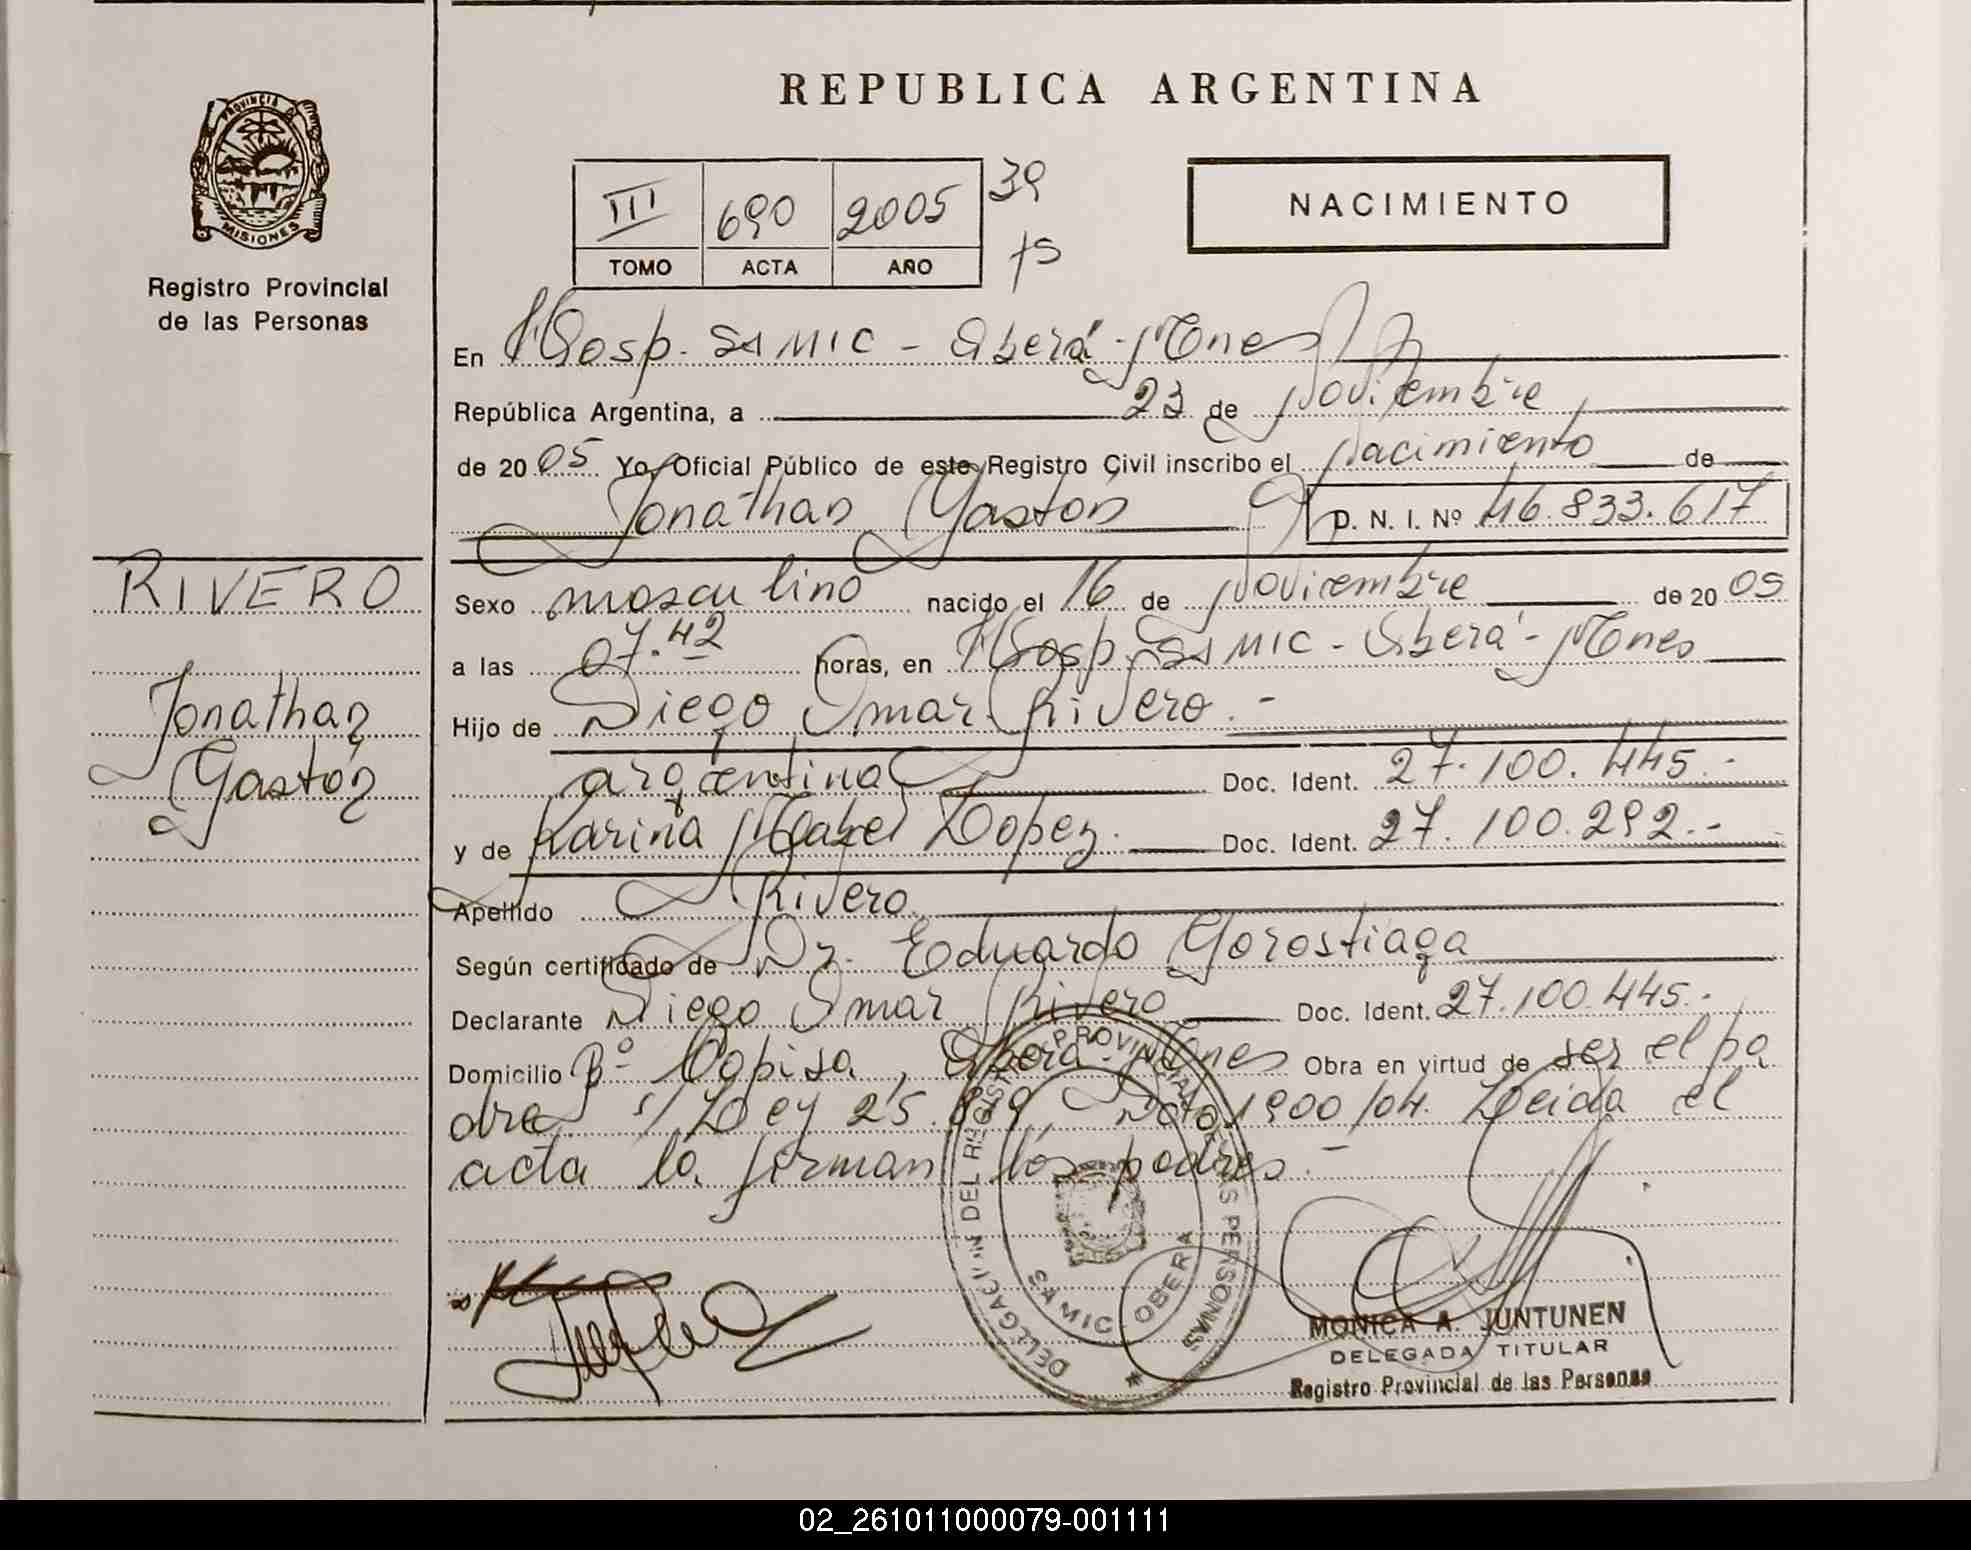 REPUBLICA ARGENTINA
PROVINCIA D
MISIONES
Registro Provincial
de las Personas
III 690 2005 39
TOMO ACTA AÑO
NACIMIENTO
En Hosp. SAMIC - Oberá - Mnes
República Argentina, a 23 de Noviembre
de 2005 Yo, Oficial Público de este Registro Civil inscribo el Nacimiento de
Jonathan Gastón D. N. I. Nº 46.833.617
RIVERO
Jonathan
Gastón
Sexo masculino nacido el 16 de Noviembre de 2005
a las 07.42 horas, en Hosp. SAMIC - Oberá - Mnes
Hijo de Diego Omar Rivero.-
argentina Doc. Ident. 27.100.445.-
y de Karina Mabel Lopez. Doc. Ident. 27.100.292.-
Apellido Rivero
Según certificado de Dr. Eduardo Gorostiaga
Declarante Diego Omar Rivero Doc. Ident. 27.100.445.-
Domicilio Bº Copisa, Oberá - Mnes Obra en virtud de ser el pa
dre s/ Ley 25.819 1900/04. Leida el
acta la firman los padres.-
DELEGACION DEL REGISTRO PROVINCIAL DE LAS PERSONAS
SAMIC OBERA
MONICA A. JUNTUNEN
DELEGADA TITULAR
Registro Provincial de las Personas
02_261011000079-001111